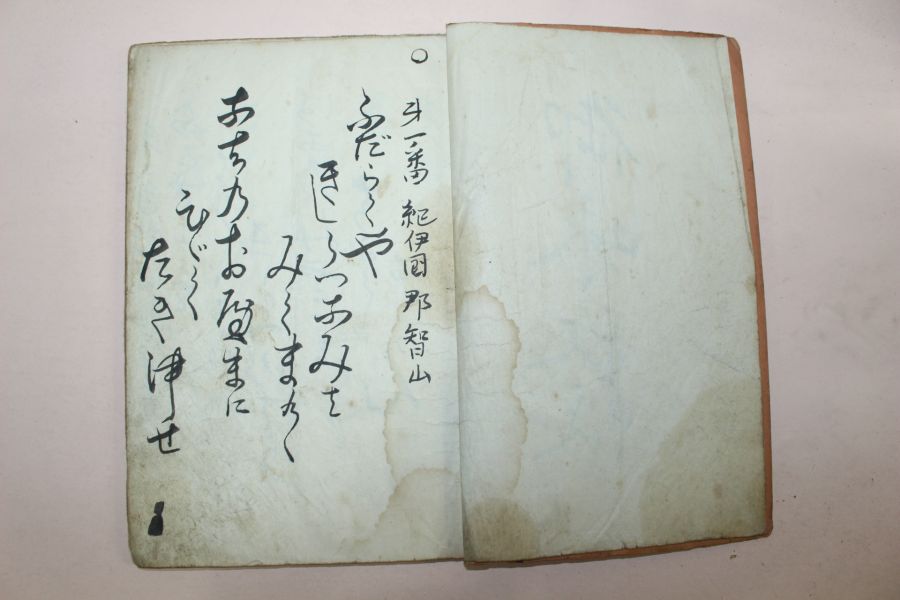 㐧一番 紀伊國 那智山
ふだらくや
きしうつなみは
みくまのゝ
なちのお山に
ひゞく
たき津せ